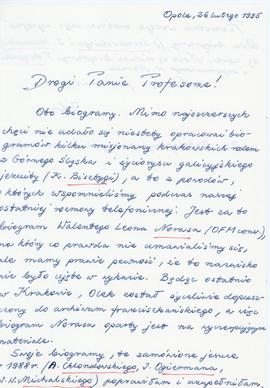 Opole, 26 lutego 1995
Drogi Panie Profesorze!
Oto biogramy. Mimo najszczerszych
chęci nie udało się niestety opracować bio-
gramów kilku misjonarzy krakowskich rodem
z Górnego Śląska i życiorysu galicyjskiego
jezuity (Ks. Bisztygi), a to z powodów,
o których wspomnieliśmy podczas naszej
ostatniej rozmowy telefonicznej. Jest za to
biogram Walentego Leona Norasa (OFM conv.),
na który co prawda nie umawialiśmy się,
ale mamy prawie pewność, że to nazwisko
nie było ujęte w wykazie. Będąc ostatnio
w Krakowie, Olek został życzliwie dopusz-
czony do archiwum franciszkańskiego, a więc
biogram Norasa oparty jest na wyczerpującym
materiale.
Swoje biogramy, te zamówione jeszcze
w 1988 r. (A. Chlondowskiego, J. Ogiermana,
H. Michalskiego) poprawiłam i uzupełniłam.